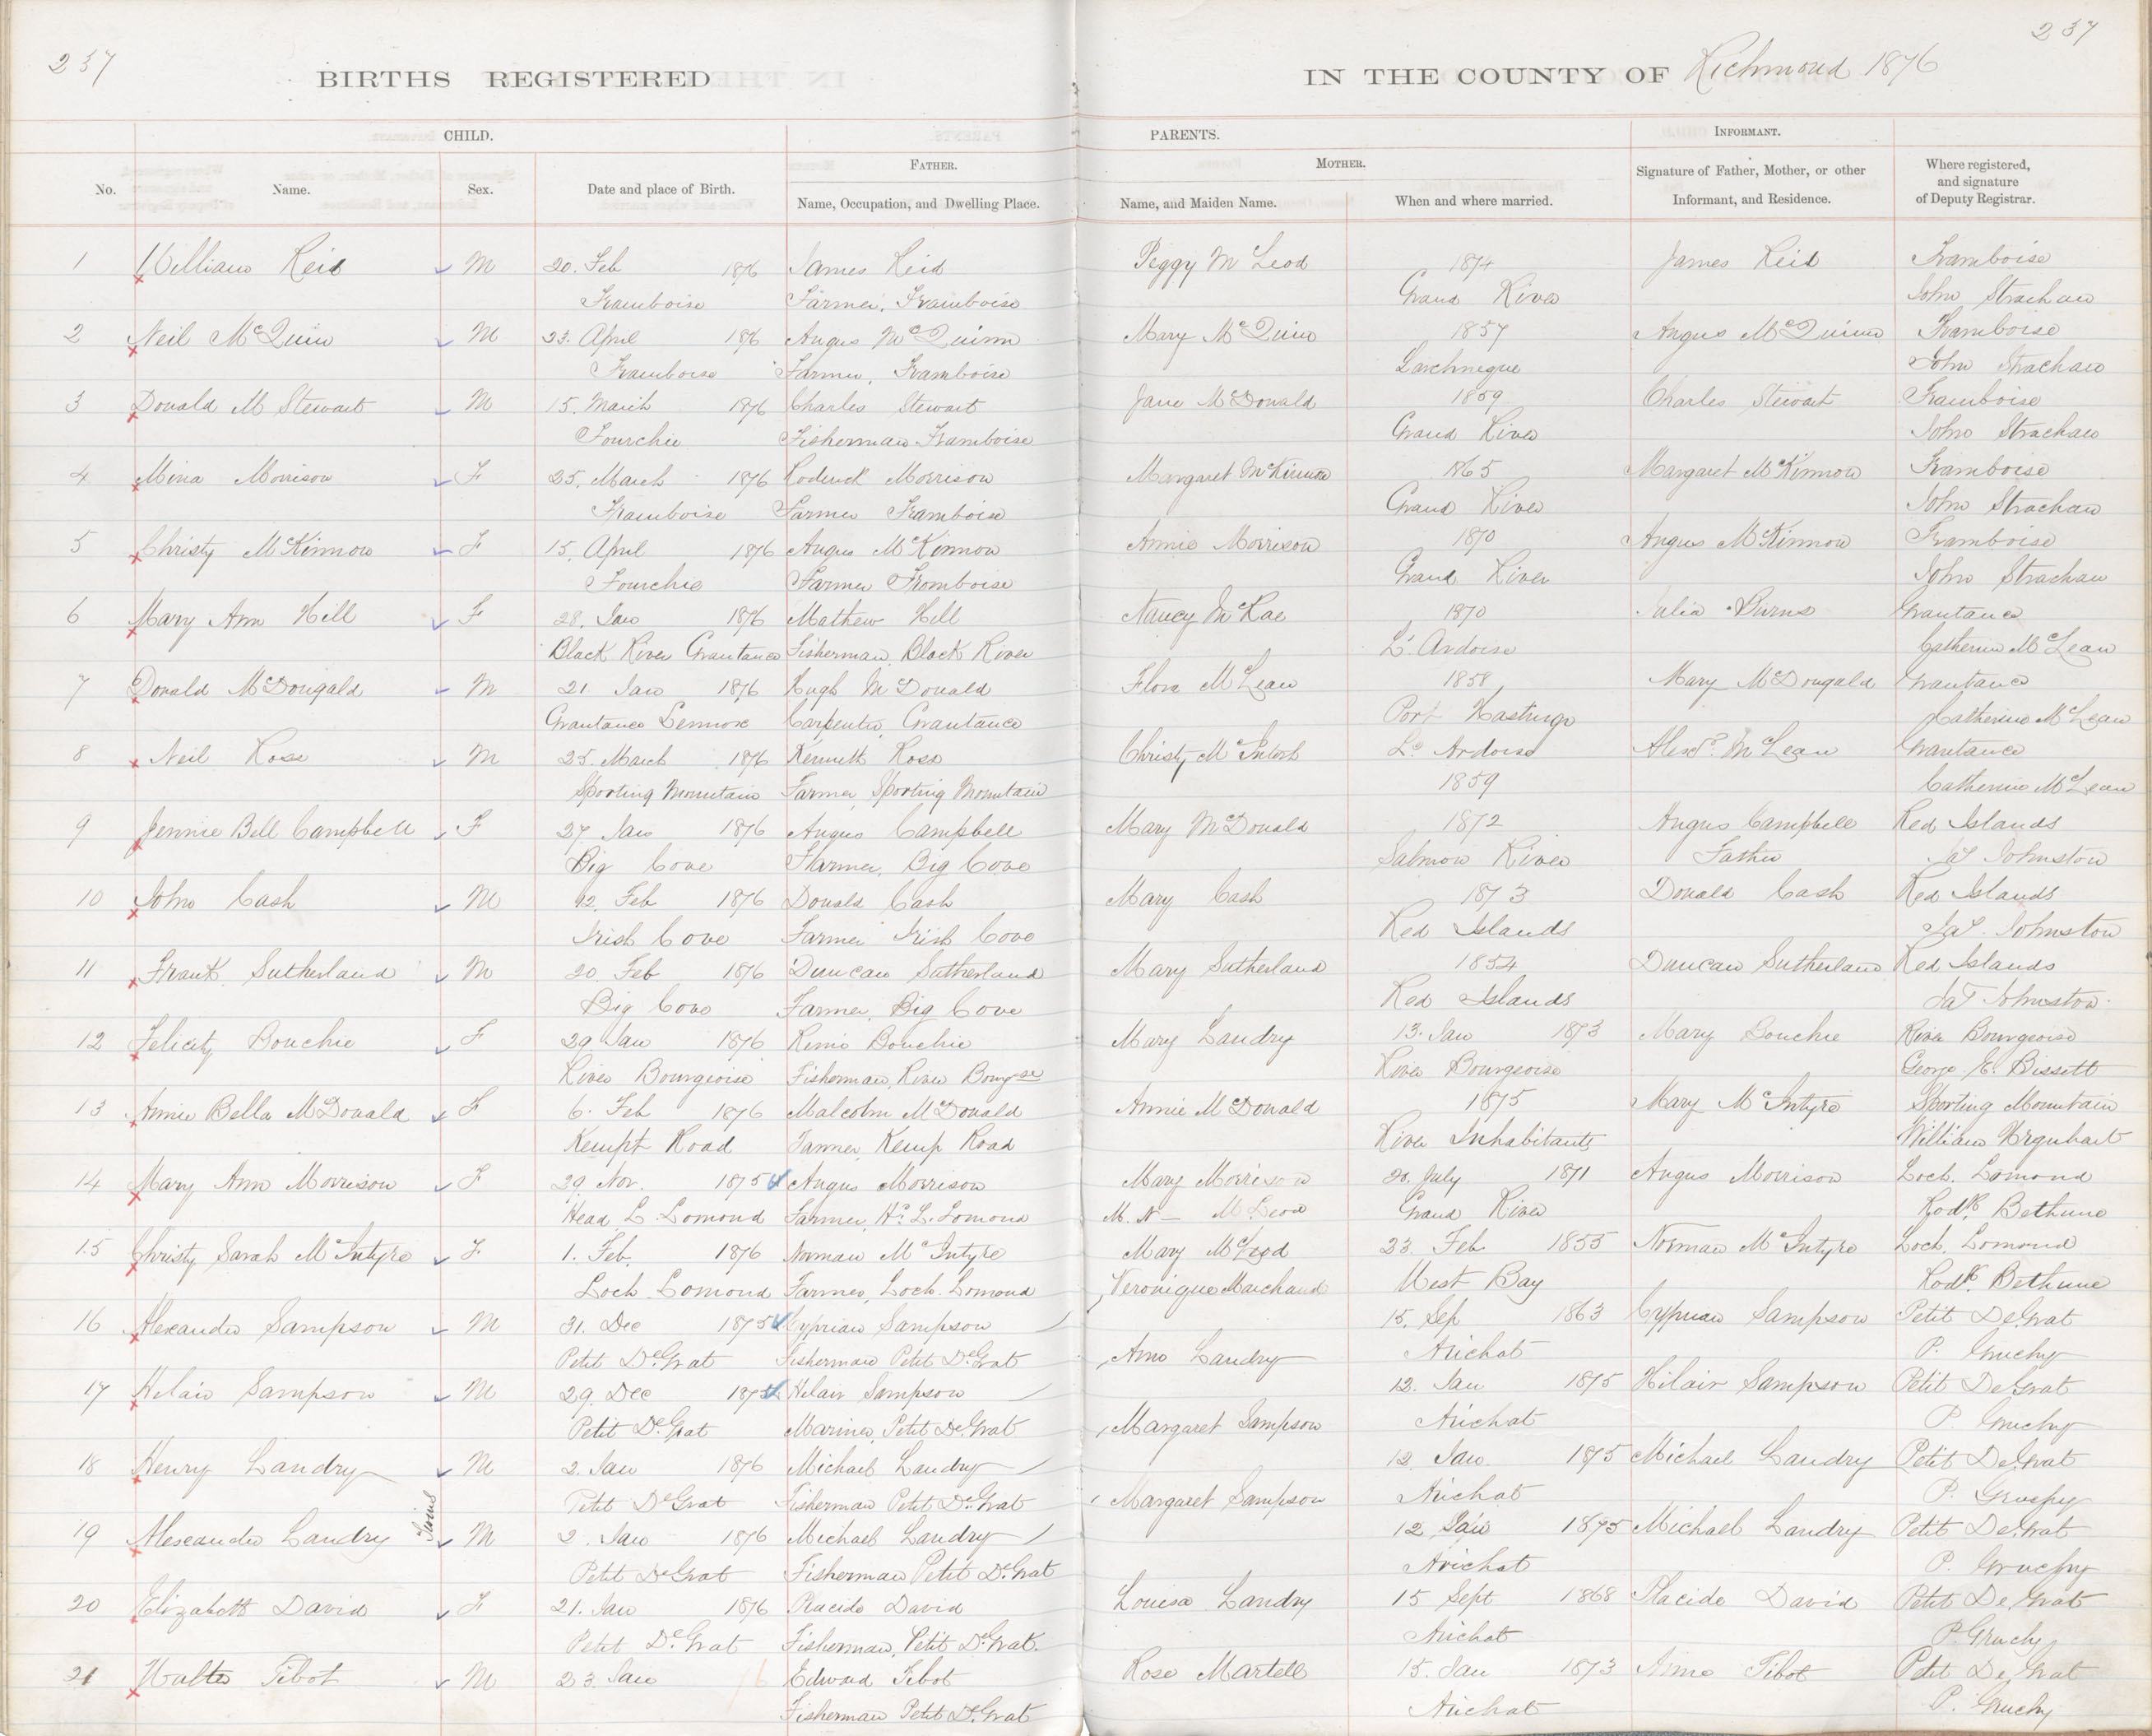 237
237
BIRTHS REGISTERED
IN THE COUNTY OF Richmond 1876
CHILD.
PARENTS.
INFORMANT.
FATHER.
MOTHER.
No.
Name.
Sex.
Date and place of Birth.
Name, Occupation, and Dwelling Place.
Name, and Maiden Name.
When and where married.
Signature of Father, Mother, or other
Informant, and Residence.
Where registered,
and signature
of Deputy Registrar.
1 William Reid M 20. Feb 1876 James Reid Peggy McLeod 1874 James Reid Framboise
Framboise Farmer, Framboise Grand River John Strachan
2 Neil McQuin M 23. April 1876 Angus McQuinn Mary McQuin 1857 Angus McQuinn Framboise
Framboise Farmer, Framboise John Strachan
3 Donald M Stewart M 15. March 1876 Charles Stewart Jane McDonald 1859 Charles Stewart Framboise
Fourchie Fisherman Framboise Grand River John Strachan
4 Mina Morrison F 25. March 1876 Roderick Morrison Margaret McKinnon 1865 Margaret McKinnon Framboise
Framboise Farmer Framboise Grand River John Strachan
5 Christy McKinnon F 15. April 1876 Angus McKinnon Annie Morrison 1870 Angus McKinnon Framboise
Fourchie Farmer Framboise Grand River John Strachan
6 Mary Ann Hill F 28. Jan 1876 Mathew Hill Nancy McRae 1870 Julia Burns Grantance
Black River Grantance Fisherman, Black River L'Ardoise Catherine McLean
7 Donald McDougald M 21 Jan 1876 Hugh McDonald Flora McLean 1858 Mary McDougald Grantance
Grantance Lennox Carpenter, Grantance Port Hastings Catherine McLean
8 Neil Ross M 25. March 1876 Kenneth Ross Christy McIntosh L'Ardoise Alexr. McLean Grantance
Sporting Mountain Farmer, Sporting Mountain 1859 Catherine McLean
9 Jennie Bell Campbell F 27 Jan 1876 Angus Campbell Mary McDonald 1872 Angus Campbell Red Islands
Big Cove Farmer, Big Cove Salmon River Father Jas Johnston
10 John Cash M 12. Feb 1876 Donald Cash Mary Cash 1873 Donald Cash Red Islands
Irish Cove Farmer Irish Cove Red Islands Jas. Johnston
11 Frank Sutherland M 20. Feb 1876 Duncan Sutherland Mary Sutherland 1854 Duncan Sutherland Red Islands
Big Cove Farmer, Big Cove Red Islands Jas Johnston
12 Felicity Bouchie F 29 Jan 1876 Remie Bouchie Mary Landry 13. Jan 1873 Mary Bouchie River Bourgeoise
River Bourgeoise Fisherman, River Bourgse River Bourgeoise George E. Bissett
13 Annie Bella McDonald F 6. Feb 1876 Malcolm McDonald Annie McDonald 1875 Mary McIntyre Sporting Mountain
Kempt Road Farmer, Kemp Road River Inhabitants William Urquhart
14 Mary Ann Morrison F 29. Nov. 1875 Angus Morrison Mary Morrison 20. July 1871 Angus Morrison Loch. Lomond
Head L. Lomond Farmer, Hd L. Lomond M. N— McLeod Grand River Rodk. Bethune
15 Christy Sarah McIntyre F 1. Feb. 1876 Norman McIntyre Mary McLeod 23. Feb 1855 Norman McIntyre Loch. Lomond
Loch. Lomond Farmer, Loch. Lomond Veronique Marchand West Bay Rodk. Bethune
16 Alexander Sampson M 31. Dec 1875 Cyprian Sampson 15. Sep 1863 Cyprian Sampson Petit DeGrat
Petit DeGrat Fisherman Petit DeGrat Ann Landry Arichat P. Gruchy
17 Hilair Sampson M 29. Dec 1875 Hilair Sampson 12. Jan 1875 Hilair Sampson Petit DeGrat
Petit DeGrat Mariner, Petit DeGrat Margaret Sampson Arichat P. Gruchy
18 Henry Landry M 2. Jan 1876 Michael Landry 12. Jan. 1875 Michael Landry Petit DeGrat
Petit DeGrat Fisherman Petit DeGrat Margaret Sampson Arichat P. Gruchy
Twins
19 Alexander Landry M 2. Jan 1876 Michael Landry 12 Jan 1875 Michael Landry Petit DeGrat
Petit DeGrat Fisherman Petit DeGrat Arichat P. Gruchy
20 Elizabeth David F 21. Jan 1876 Placide David Louisa Landry 15 Sept 1868 Placide David Petit DeGrat
Petit DeGrat Fisherman, Petit DeGrat. Arichat P. Gruchy
21 Walter Tibot M 23 Jan 76 Edward Tibot Rose Martell 15. Jan 1873 Anne Tibot Petit DeGrat
Fisherman Petit DeGrat Arichat P. Gruchy